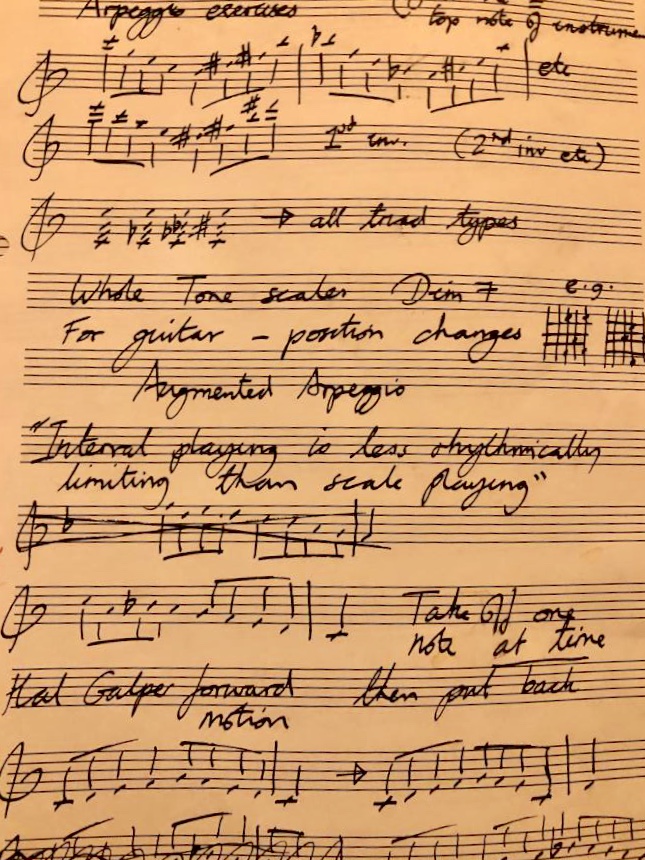 Arpeggio exercises
top note of instrument
etc
1st inv. (2nd inv etc)
→ all triad types
Whole Tone scales Dim 7 e.g.
For guitar – position changes
Augmented Arpeggio
"Interval playing is less rhythmically
limiting than scale playing"
Take off one
note at time
Hal Galper forward then put back
motion
→